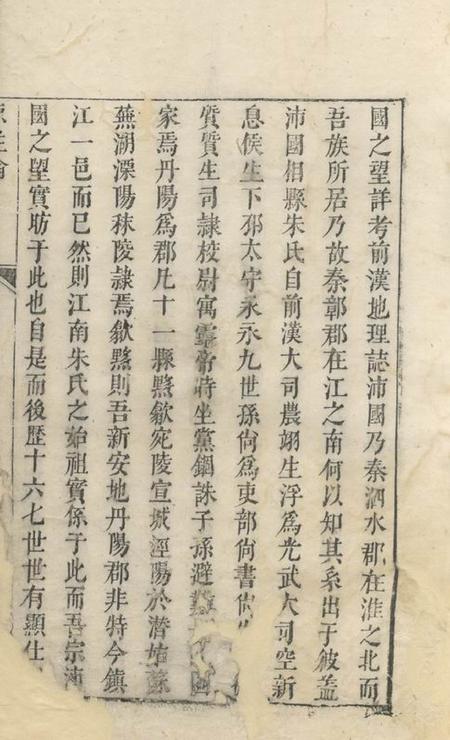 國之望詳考前漢地理誌沛國乃秦泗水郡在淮之北而
吾族所居乃故秦鄣郡在江之南何以知其系出于彼蓋
沛國相縣朱氏自前漢大司農翊生浮爲光武大司空新
息侯生下邳太守永永九世孫尙爲吏部尙書尙
質質生司隷校尉寓靈帝時坐黨錮誅子孫避難
家焉丹陽爲郡凡十一縣黟歙宛陵宣城涇陽於潛姑蘇
蕪湖溧陽秣陵隷焉歙黟則吾新安地丹陽郡非特今鎮
江一邑而已然則江南朱氏之始祖實係于此而吾宗沛
國之望實昉于此也自是而後歷十六七世世有顯仕